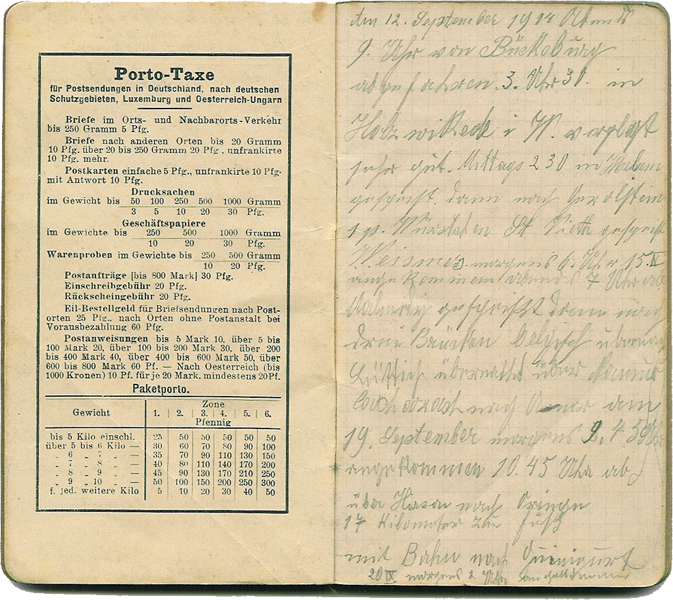 Porto-Taxe
für Postsendungen in Deutschland, nach deutschen
Schutzgebieten, Luxemburg und Oesterreich-Ungarn
Briefe im Orts- und Nachbarorts-Verkehr
bis 250 Gramm 5 Pfg.
Briefe nach anderen Orten bis 20 Gramm
10 Pfg. über 20 bis 250 Gramm 20 Pfg., unfrankirte
10 Pfg. mehr.
Postkarten einfache 5 Pfg., unfrankirte 10 Pfg.
mit Antwort 10 Pfg.
Drucksachen
im Gewicht bis 50 100 250 500 1000 Gramm
3 5 10 20 30 Pfg.
Geschäftspapiere
im Gewichte bis 250 500 1000 Gramm
10 20 30 Pfg.
Warenproben im Gewichte bis 250 500 Gramm
10 20 Pfg.
Postaufträge [bis 800 Mark] 30 Pfg.
Einschreibgebühr 20 Pfg.
Rückscheingebühr 20 Pfg.
Eil-Bestellgeld für Briefsendungen nach Post-
orten 25 Pfg., nach Orten ohne Postanstalt bei
Vorausbezahlung 60 Pfg.
Postanweisungen bis 5 Mark 10, über 5 bis
100 Mark 20, über 100 bis 200 Mark 30, über 200
bis 400 Mark 40, über 400 bis 600 Mark 50, über
600 bis 800 Mark 60 Pf. — Nach Oesterreich (bis
1000 Kronen) 10 Pf. für je 20 Mark, mindestens 20 Pf.
Paketporto.
Gewicht Zone
1. 2. 3. 4. 5. 6.
Pfennig
bis 5 Kilo einschl. 25 50 50 50 50 50
über 5 bis 6 Kilo — 30 60 70 80 90 100
„ 6 „ 7 „ — 35 70 90 110 130 150
„ 7 „ 8 „ — 40 80 110 140 170 200
„ 8 „ 9 „ — 45 90 130 170 210 250
„ 9 „ 10 „ — 50 100 150 200 250 300
f. jed. weitere Kilo 5 10 20 30 40 50
den 12. September 1914 Abends
9. Uhr von Bückeburg
abgefahren 3. Uhr 30. in
Holzwickede i W. verpflegt
sehr gut. Mittags 2 30 in
gespeist. dann nach Gerolstein
St Vieth gespeist
Weismes morgens 6. Uhr 15 IX
angekommen abends 7 Uhr ab
gespeist dann nach
drei Brücken belgisch
Lüttich übernachtet über Namur
nach dem
19. September morgens 9,45 Uhr
angekommen 10.45 Uhr ab
über nach
17 Kilometer zu Fuß
mit Bahn nach
20 IX morgens 2 Uhr